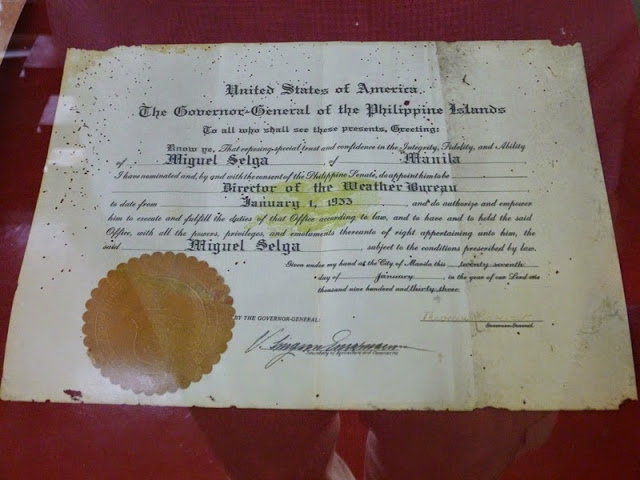 United States of America
The Governor-General of the Philippine Islands
To all who shall see these presents, Greeting:
Know ye, That reposing special trust and confidence in the Integrity, Fidelity, and Ability
of Miguel Selga of Manila
I have nominated and, by and with the consent of the Philippine Senate, do appoint him to be
Director of the Weather Bureau
to date from January 1, 1933 and do authorize and empower
him to execute and fulfill the duties of that Office according to law, and to have and to hold the said
Office, with all the powers, privileges, and emoluments thereunto of right appertaining unto him, the
said Miguel Selga subject to the conditions prescribed by law.
Given under my hand at the City of Manila this twenty seventh
day of January in the year of our Lord one
thousand nine hundred and thirty three
BY THE GOVERNOR-GENERAL:
Governor-General
Secretary of Agriculture and Commerce